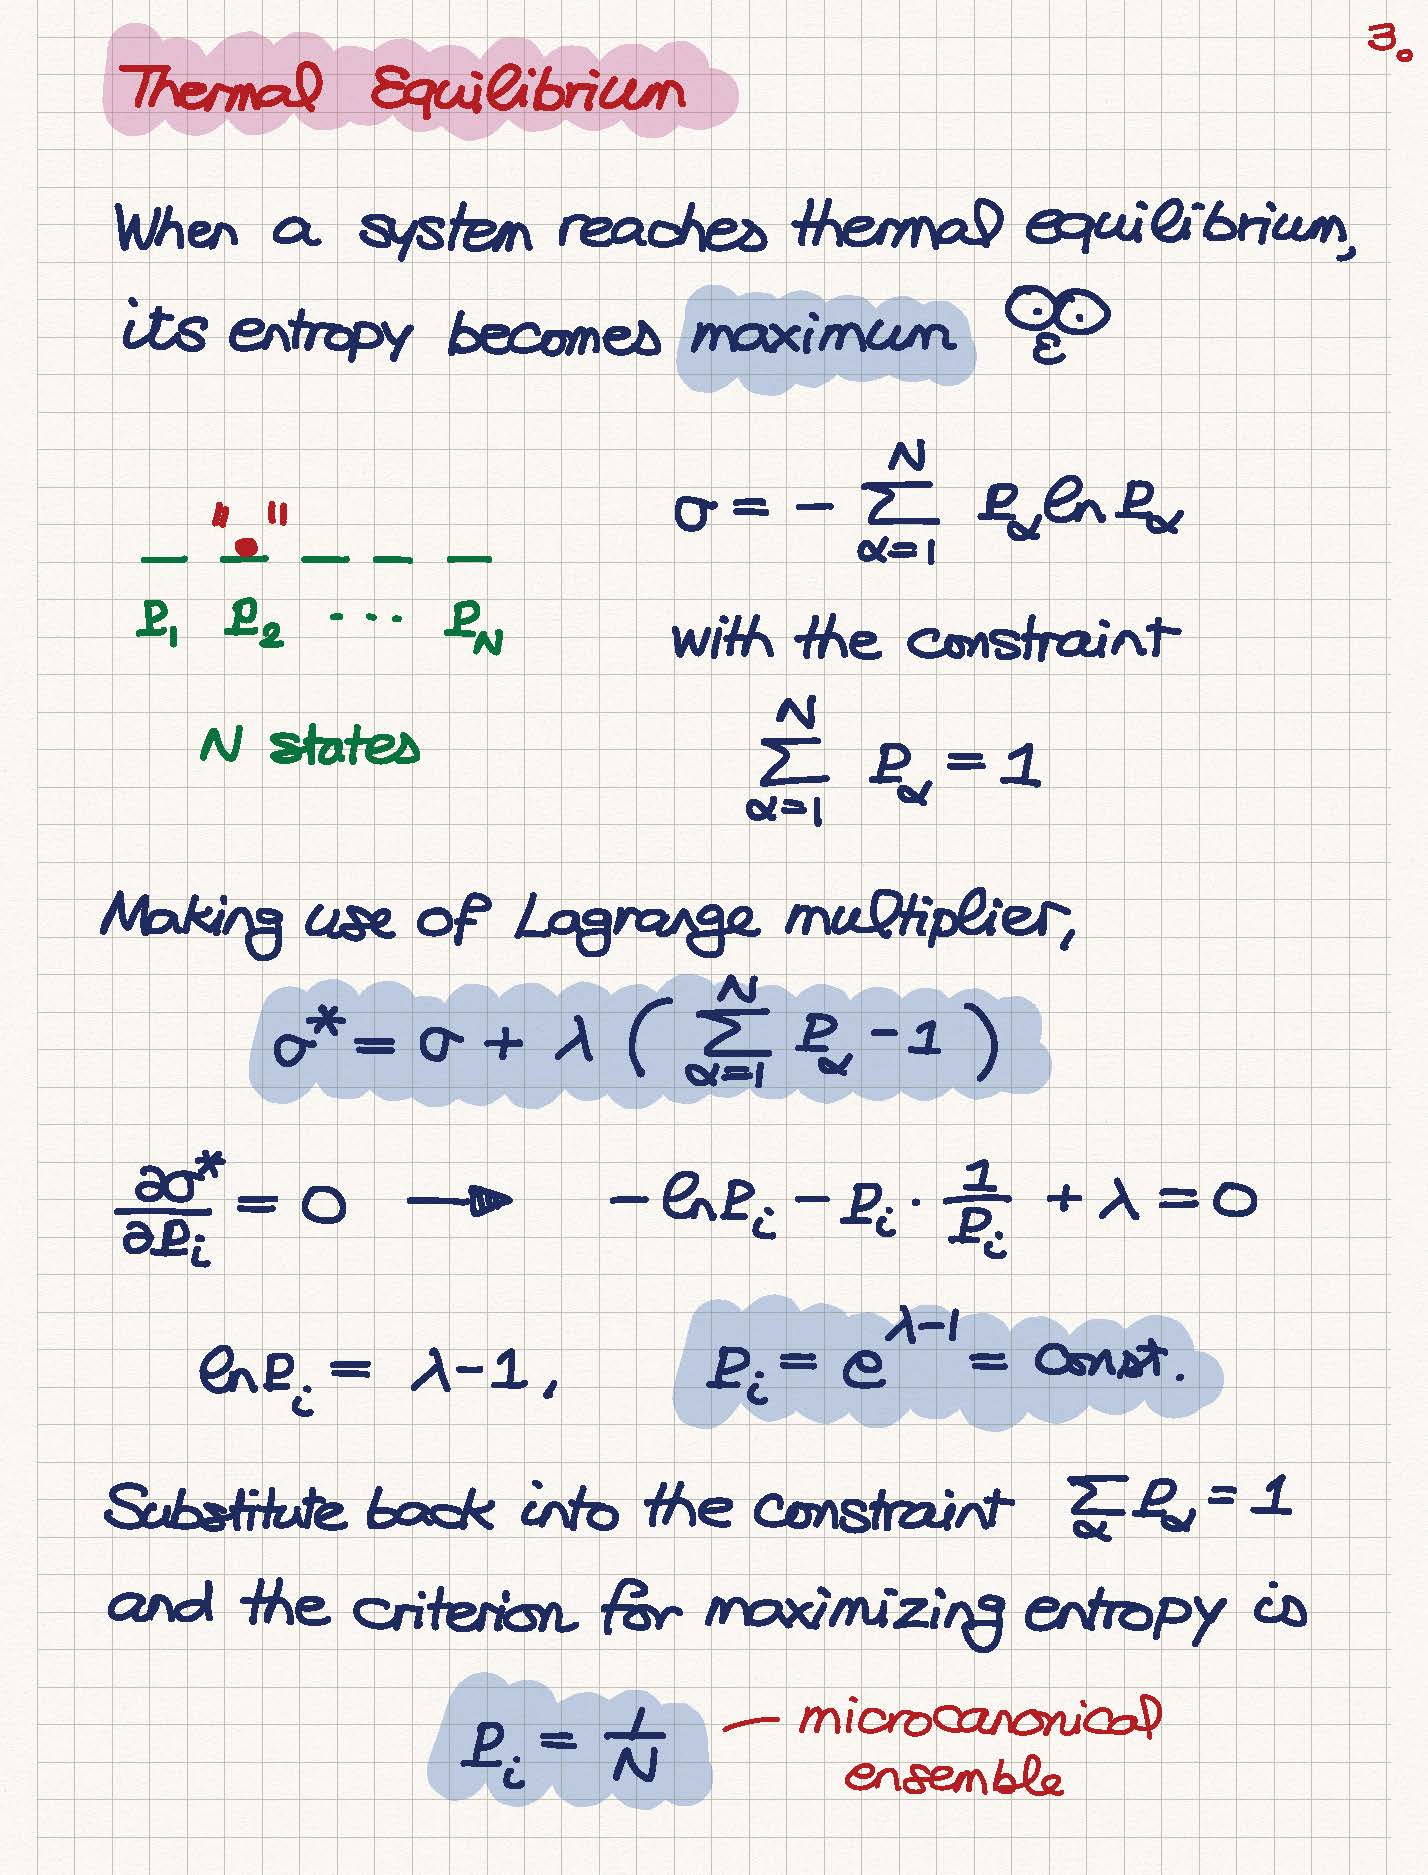 3.
Thermal Equilibrium
When a system reaches thermal equilibrium,
its entropy becomes maximum
σ = - Σ_{α=1}^{N} P_α ln P_α
" "
P_1 P_2 ... P_N
with the constraint
N states
Σ_{α=1}^{N} P_α = 1
Making use of Lagrange multiplier,
σ* = σ + λ ( Σ_{α=1}^{N} P_α - 1 )
∂σ*/∂P_i = 0 → - ln P_i - P_i · 1/P_i + λ = 0
ln P_i = λ - 1, P_i = e^{λ-1} = const.
Substitute back into the constraint Σ_α P_α = 1
and the criterion for maximizing entropy is
P_i = 1/N — microcanonical
ensemble